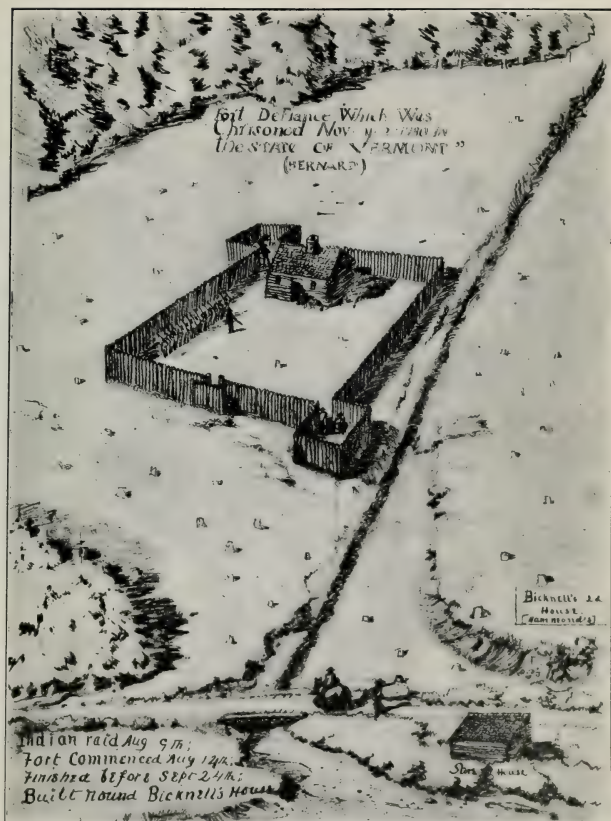 Fort Defiance Which Was
Chrisoned Nov. 1780 in
the STATE OF VERMONT"
(BERNARD)
Bicknell's 2d
House.
[Hammond's]
Indian raid Aug 9th;
Fort Commenced Aug 12th;
Finished before Sept 24th;
Built Round Bicknell's House
Store House